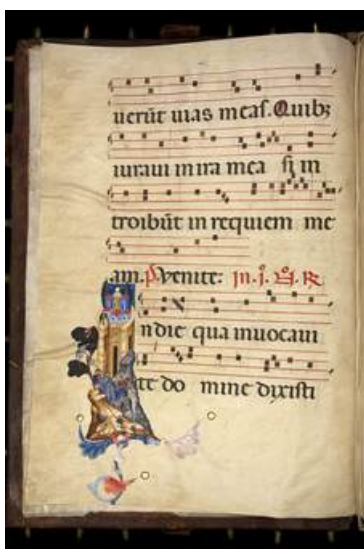 uerūt uias meas. Quibȝ
iuraui in ira mea si in
troibūt in requiem me
am. P. Venite: In. i. R
ndie qua inuocaui
te do mine dixisti